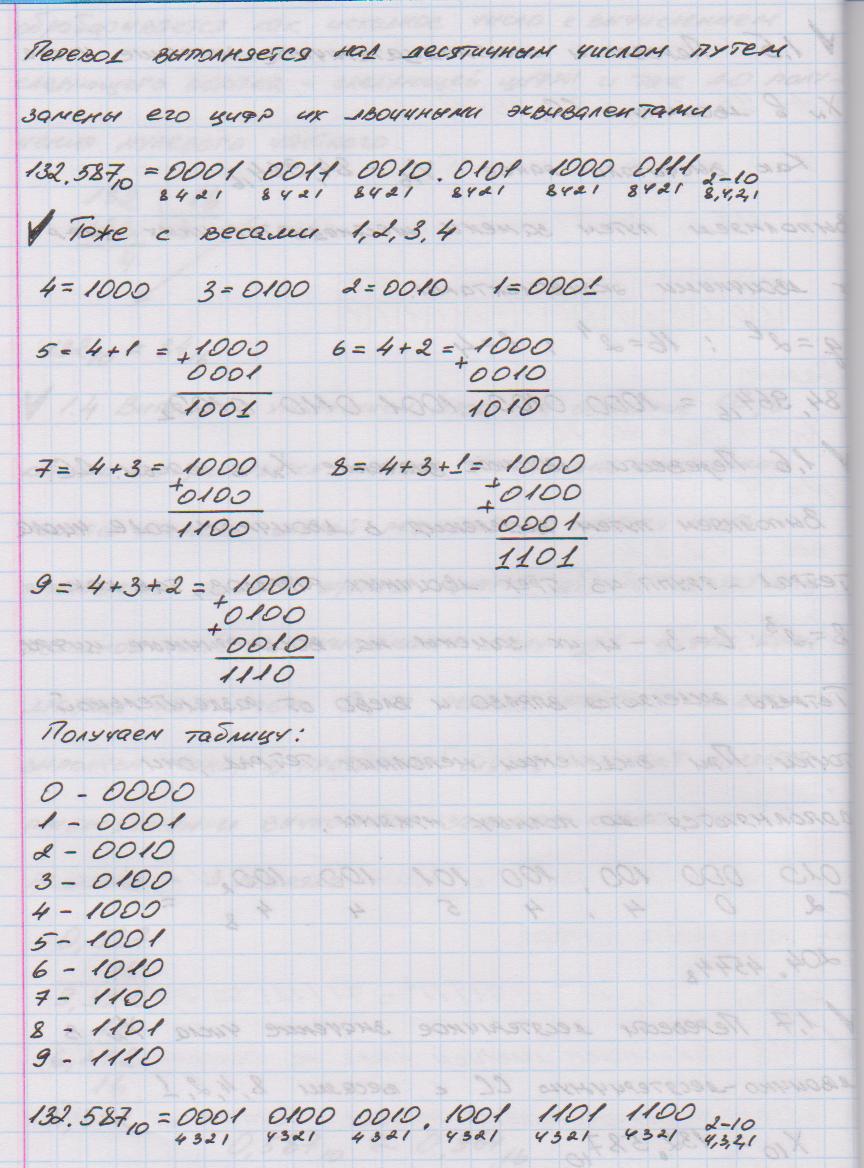 Перевод выполняется над десятичным числом путем
замены его цифр их двоичными эквивалентами
132.587₁₀ = 0001 0011 0010 . 0101 1000 0111 2-10
8421 8421 8421 8421 8421 8421 8,4,2,1
√ Тоже с весами 1,2,3,4
4 = 1000 3 = 0100 2 = 0010 1 = 0001
5 = 4+1 = 1000 6 = 4+2 = 1000
+ 0001 + 0010
1001 1010
7 = 4+3 = 1000 8 = 4+3+1 = 1000
+ 0100 + 0100
1100 + 0001
1101
9 = 4+3+2 = 1000
+ 0100
+ 0010
1110
Получаем таблицу:
0 - 0000
1 - 0001
2 - 0010
3 - 0100
4 - 1000
5 - 1001
6 - 1010
7 - 1100
8 - 1101
9 - 1110
132.587₁₀ = 0001 0100 0010 . 1001 1101 1100 2-10
4321 4321 4321 4321 4321 4321 4,3,2,1